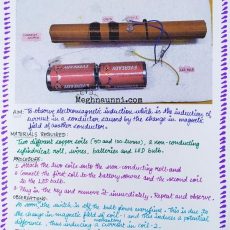 Meghnaunni.com
AIM: To observe electromagnetic induction which is the induction of
current in a conductor caused by the change in magnetic
field of another conductor.
MATERIALS REQUIRED:
Two different copper coils (50 and 100 turns), a non-conducting
cylindrical roll, wires, batteries and LED bulb.
PROCEDURE:
1. Attach the two coils onto the non-conducting roll and
Connect the first coil to the battery source and the second coil
to the LED bulb.
2. Plug in the key and remove it immediately. Repeat and observe.
OBSERVATIONS:
the switch is off, the bulb glows
the change in magnetic field of coil - and this induces a potential
difference, thus inducing a current in coil-2.